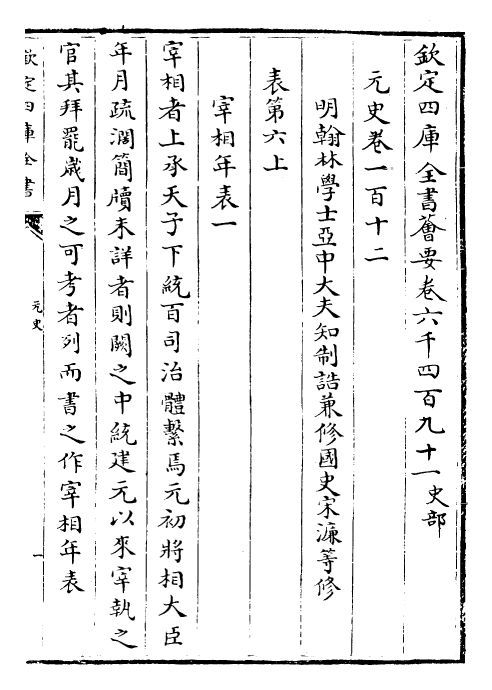 欽定四庫全書薈要卷六千四百九十一史部
元史卷一百十二
明翰林學士亞中大夫知制誥兼修國史宋濂等修
表第六上
宰相年表一
宰相者上承天子下統百司治體繫焉元初將相大臣
年月疏濶簡牘未詳者則闕之中統建元以來宰執之
官其拜罷歲月之可考者列而書之作宰相年表
欽定四庫全書
元史
一